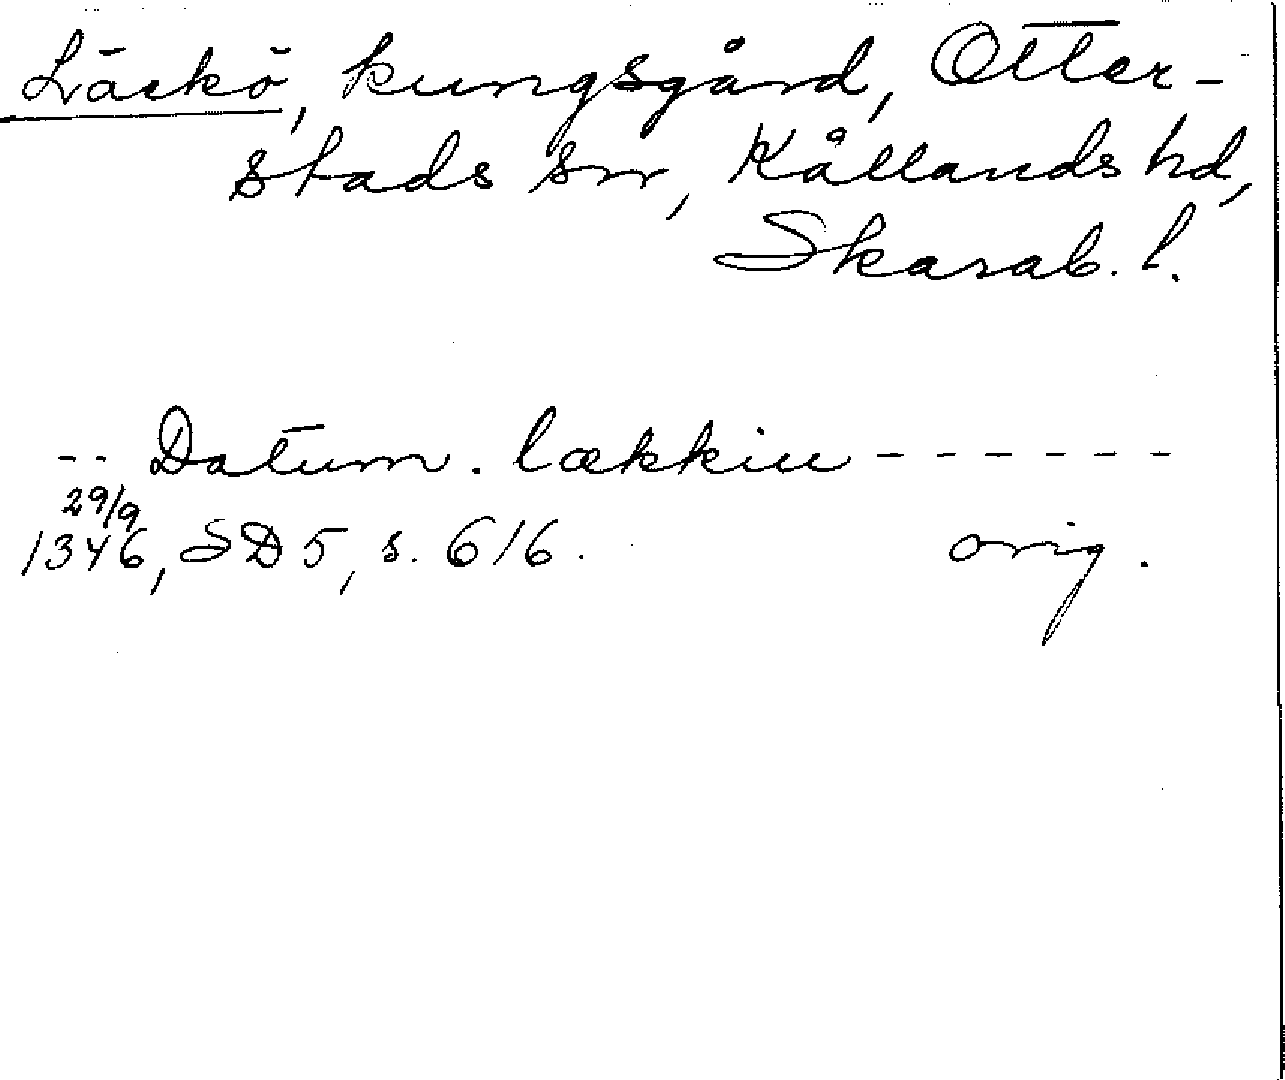 Läckö, kungsgård, Otter-
stads sn, Kållands hd,
Skarab. l.
-- Datum. lækkiu ------
29/9
1346, SD 5, s. 616. orig.